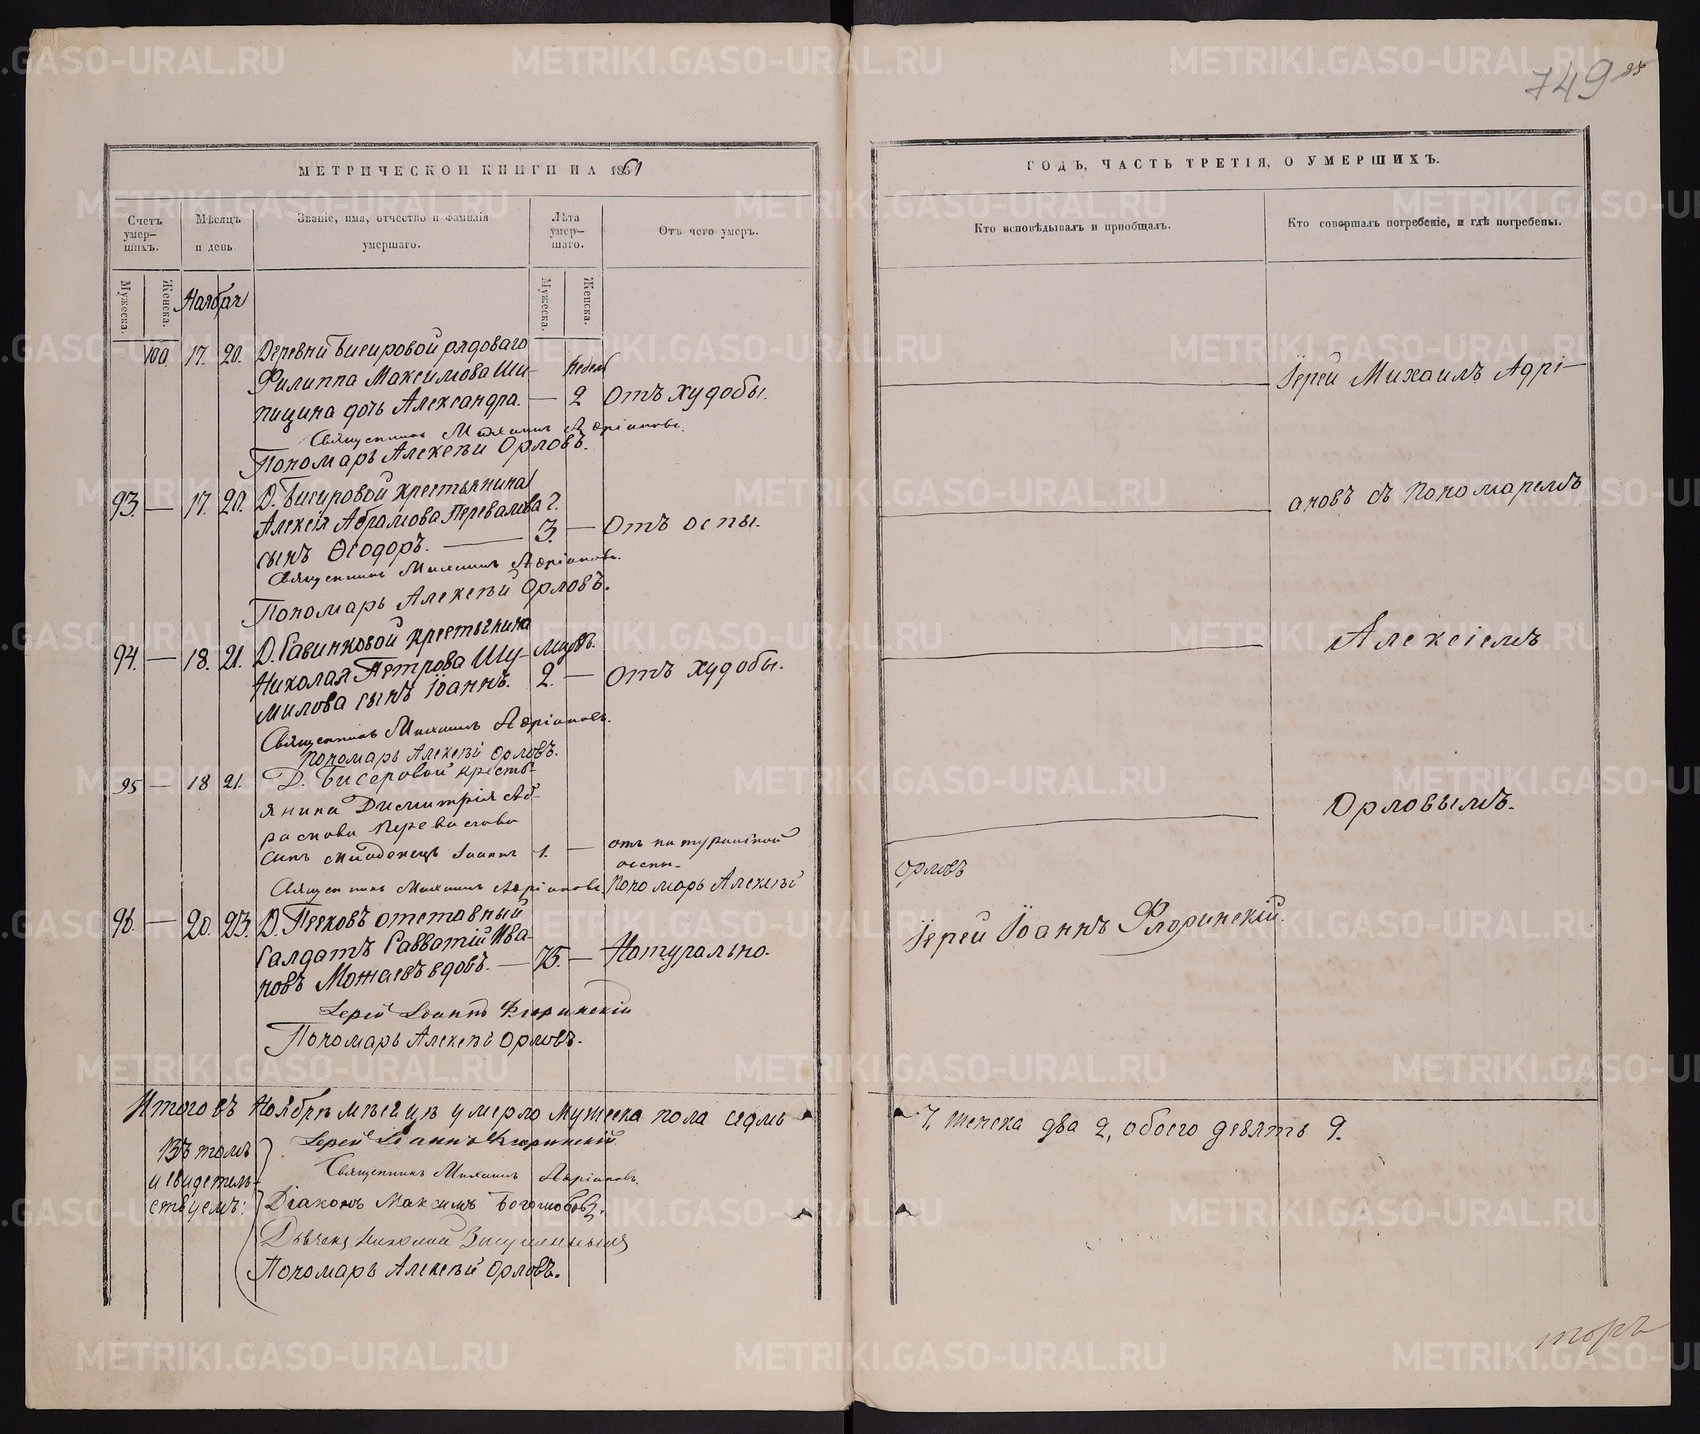 749
МЕТРИЧЕСКОЙ КНИГИ НА 1861
ГОДЪ, ЧАСТЬ ТРЕТІЯ, О УМЕРШИХЪ.
Счетъ умер-шихъ.
Мѣсяцъ и день.
Званіе, имя, отчество и фамилія умершаго.
Лѣта умер-шаго.
Отъ чего умеръ.
Кто исповѣдывалъ и пріобщалъ.
Кто совершалъ погребеніе, и гдѣ погребены.
Мужеска.
Женска.
Мужеска.
Женска.
Ноября
100 17. 20. Деревни Бисировой рядоваго
Филиппа Максимова Ши- недел
пицина дочь Александра. — 2 Отъ худобы.
Священникъ Михаилъ Адріановъ.
Пономарь Алексѣй Орловъ.
93. — 17. 20. Д. Бисировой крестьянина
Алексія Абрамова Перевалова г.
сынъ Ѳеодоръ. — 3. — Отъ оспы.
Священникъ Михаилъ Адріановъ.
Пономарь Алексѣй Орловъ.
94. — 18. 21. Д. Савинковой крестьянина
Николая Петрова Шу-
милова сынъ Іоаннъ. 2. — Отъ худобы.
Священникъ Михаилъ Адріановъ.
Пономарь Алексѣй Орловъ.
95 — 18 21. Д. Бисеровой кресть-
янина Димитрія Аб-
рамова Перевалова
сынъ младенецъ Іоаннъ 1. — отъ натуральной
оспы.
Священникъ Михаилъ Адріановъ. Пономарь Алексѣй
Орловъ
96. — 20. 23. Д. Песковъ отставный
Салдатъ Савватій Ива-
новъ Можаевъ вдовъ. — 75. — Натурально.
Іерей Іоаннъ Флоринскій
Пономарь Алексѣй Орловъ.
Іерей Михаилъ Адрі-
ановъ съ Пономаремъ
Алексіемъ
Орловымъ.
Іерей Іоаннъ Флоринскій.
Итого въ Ноябрѣ мѣсяцѣ умерло мужеска пола седмь
7, женска два 2, обоего девять 9.
Въ томъ
и свидетель-
ствуемъ:
Іерей Іоаннъ Флоринскій
Священникъ Михаилъ Адріановъ.
Діаконъ Максимъ Боголюбовъ.
Дьячекъ Николай
Пономарь Алексѣй Орловъ.
METRIKI.GASO-URAL.RU